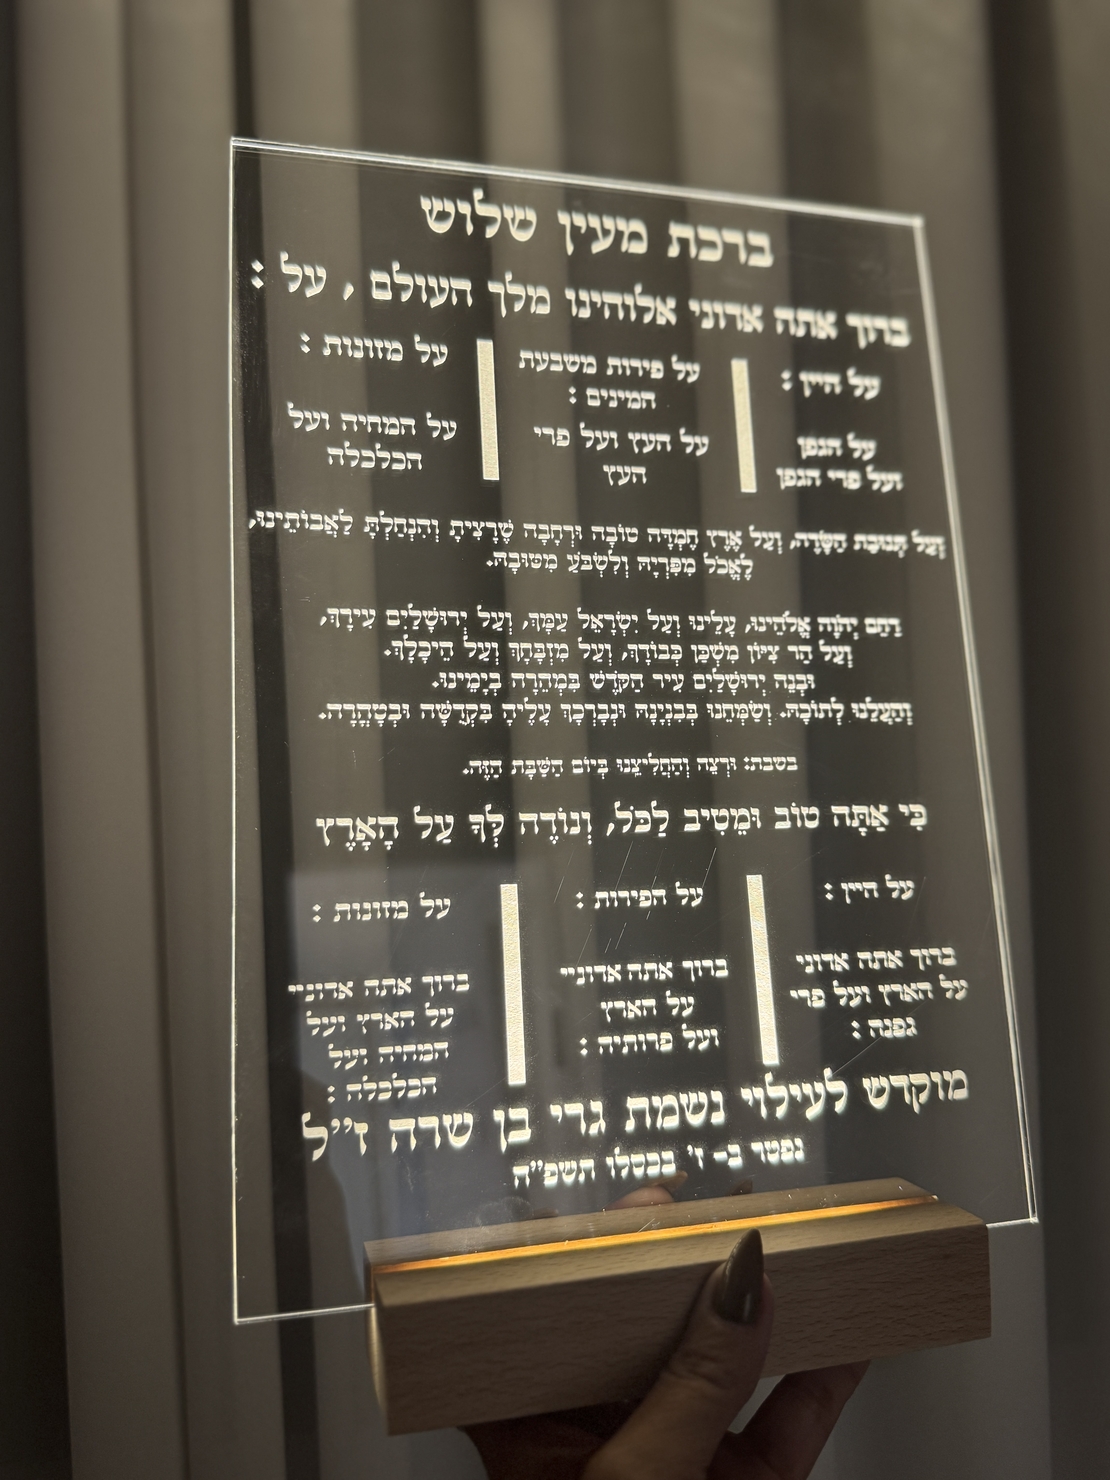 ברכת מעין שלוש
ברוך אתה אדוני אלוהינו מלך העולם , על :
על היין :
על הגפן
ועל פרי הגפן
על פירות משבעת
המינים :
על העץ ועל פרי
העץ
על מזונות :
על המחיה ועל
הכלכלה
וְעַל תְּנוּבַת הַשָּׂדֶה, וְעַל אֶרֶץ חֶמְדָּה טוֹבָה וּרְחָבָה שֶׁרָצִיתָ וְהִנְחַלְתָּ לַאֲבוֹתֵינוּ,
לֶאֱכֹל מִפִּרְיָהּ וְלִשְׂבֹּעַ מִטּוּבָהּ.
רַחֵם יְהֹוָה אֱלֹהֵינוּ, עָלֵינוּ וְעַל יִשְׂרָאֵל עַמָּךְ, וְעַל יְרוּשָׁלַיִם עִירָךְ,
וְעַל הַר צִיּוֹן מִשְׁכַּן כְּבוֹדָךְ, וְעַל מִזְבָּחָךְ וְעַל הֵיכָלָךְ.
וּבְנֵה יְרוּשָׁלַיִם עִיר הַקֹּדֶשׁ בִּמְהֵרָה בְיָמֵינוּ.
וְהַעֲלֵנוּ לְתוֹכָהּ. וְשַׂמְּחֵנוּ בְּבִנְיָנָהּ וּנְבָרְכָךְ עָלֶיהָ בִּקְדֻשָּׁה וּבְטָהֳרָה.
בשבת: וּרְצֵה וְהַחֲלִיצֵנוּ בְּיוֹם הַשַּׁבָּת הַזֶּה.
כִּי אַתָּה טוֹב וּמֵטִיב לַכֹּל, וְנוֹדֶה לְּךָ עַל הָאָרֶץ
על היין :
ברוך אתה אדוני
על הארץ ועל פרי
גפנה :
על הפירות :
ברוך אתה אדוניי
על הארץ
ועל פרותיה :
על מזונות :
ברוך אתה אדוניי
על הארץ ועל
המחיה ועל
הכלכלה :
מוקדש לעילוי נשמת גדי בן שרה ז''ל
נפטר ב- ז' בכסלו תשפ''ה